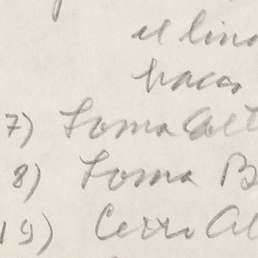 el lin
hacer
7) Loma Alt
8) Loma B
19) Cerro Al